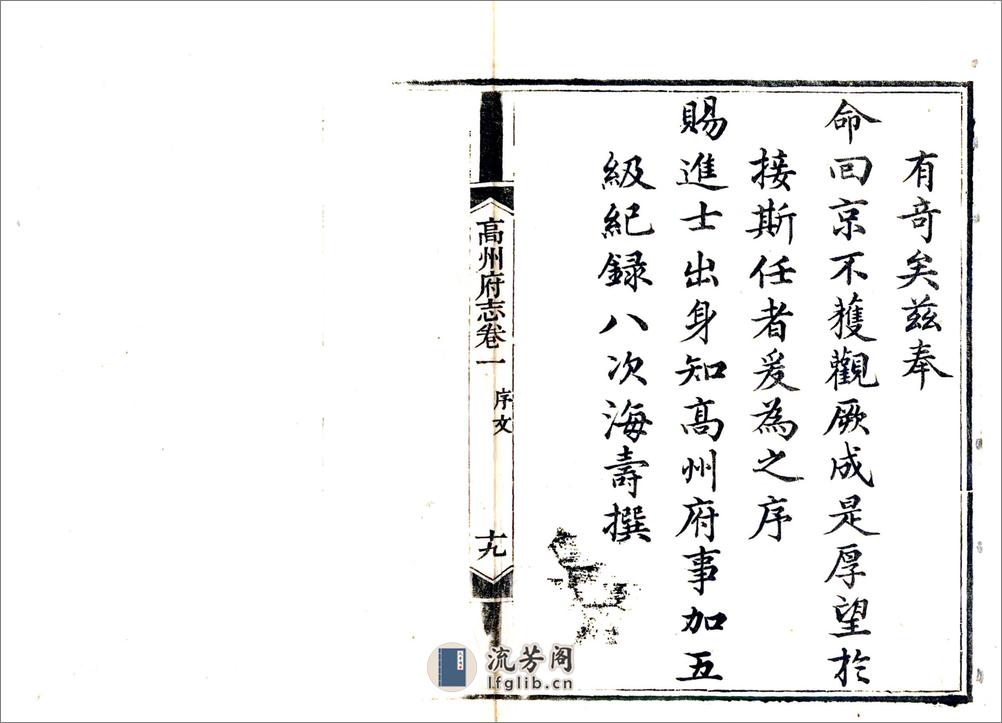 有奇矣茲奉
命回京不獲觀厥成是厚望於
接斯任者爰為之序
賜進士出身知高州府事加五
級紀録八次海壽撰
高州府志卷一
序文
十九
流芳阁
lfglib.cn